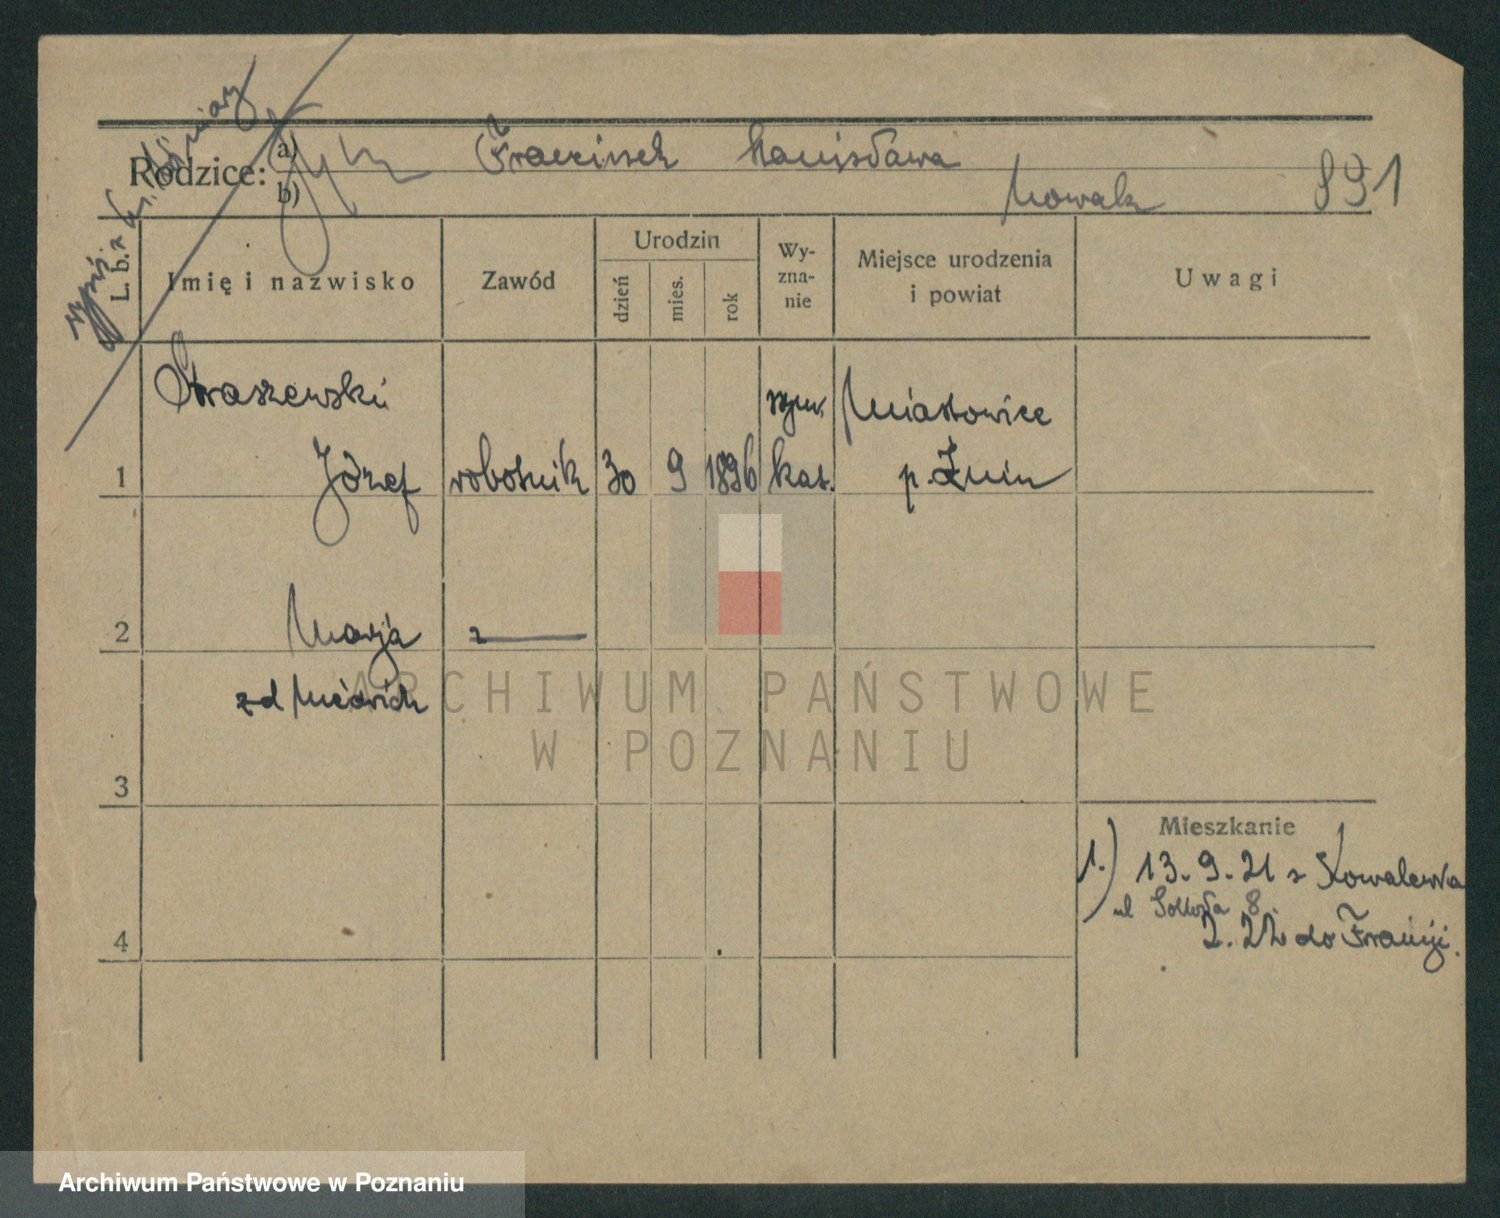 Rodzice:
a) Franciszek Stanisława
b) Nowak 891
L. b.
Imię i nazwisko
Zawód
Urodzin
dzień
mies.
rok
Wy-
zna-
nie
Miejsce urodzenia
i powiat
Uwagi
Straszewski
rzym. Miastowice
1 Józef robotnik 30 9 1896 kat. p. Żnin
2 Marja
zd
3
Mieszkanie
1.) 13. 9. 21 z Kowalewka
ul 8.
4 2. 22 do Francji.
ARCHIWUM PAŃSTWOWE
W POZNANIU
Archiwum Państwowe w Poznaniu